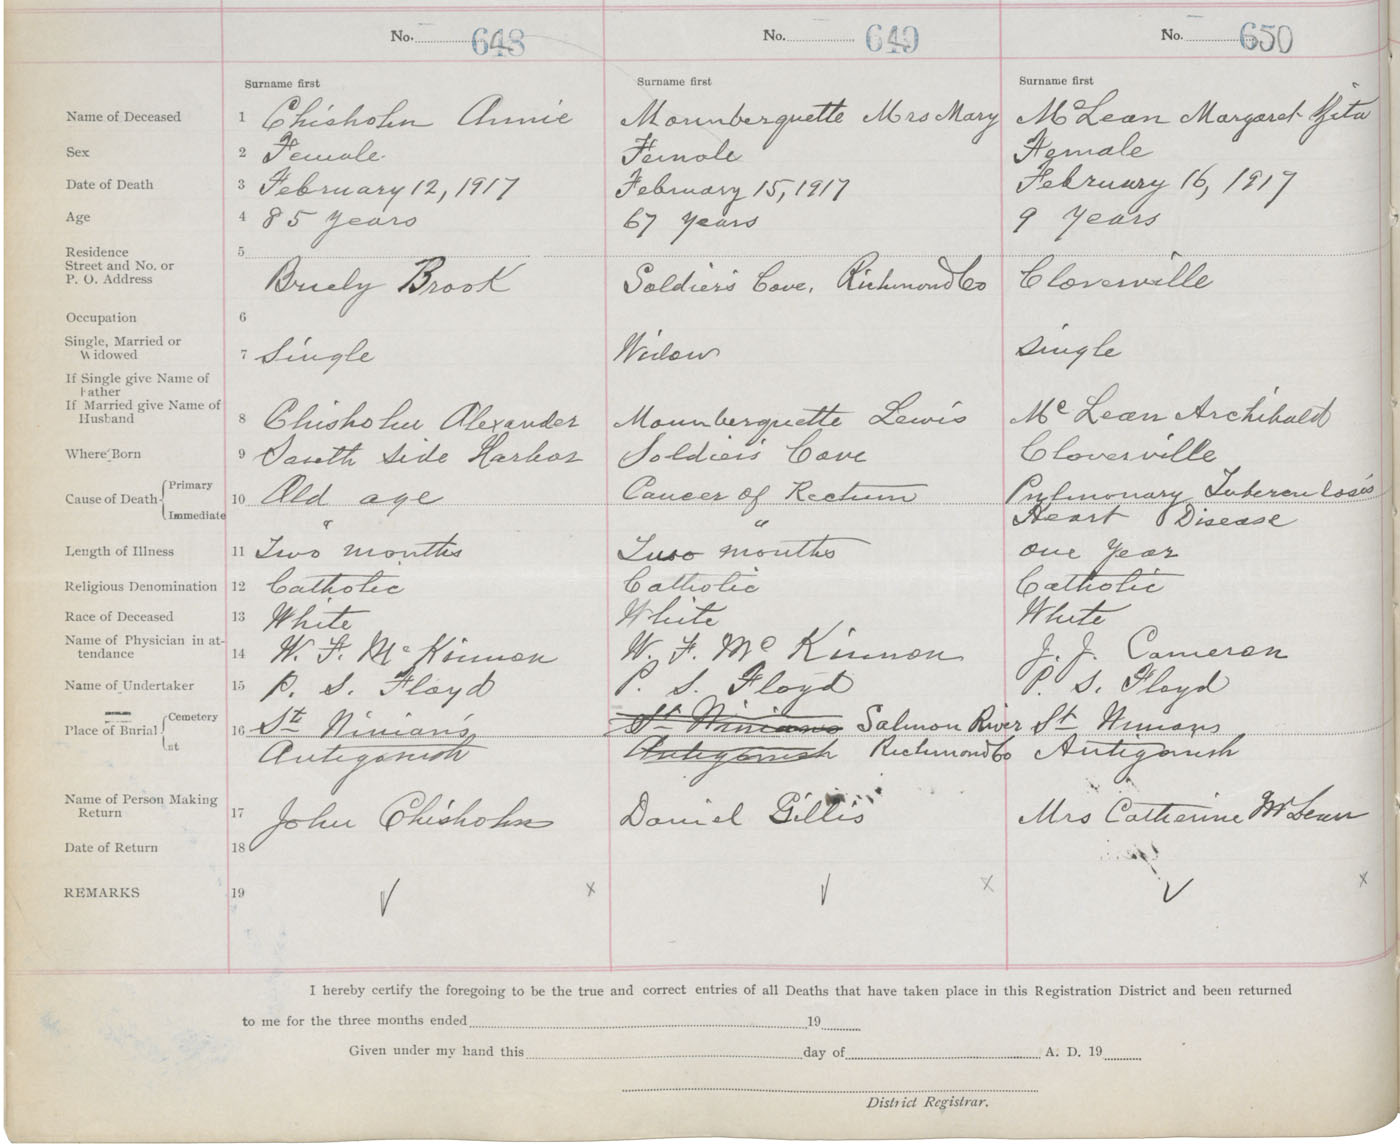 No. 648 No. 649 No. 650
Surname first Surname first Surname first
Name of Deceased 1 Chisholm Annie Mounberquette Mrs Mary McLean Margaret Zita
Sex 2 Female Female Female
Date of Death 3 February 12, 1917 February 15, 1917 February 16, 1917
Age 4 85 years 67 years 9 years
Residence 5
Street and No. or
P. O. Address Briely Brook Soldiers Cove, Richmond Co Cloverville
Occupation 6
Single, Married or
Widowed 7 Single Widow Single
If Single give Name of
Father
If Married give Name of
Husband 8 Chisholm Alexander Mounberquette Lewis Mc Lean Archibald
Where Born 9 South Side Harbor Soldiers Cove Cloverville
Cause of Death Primary 10 Old age Cancer of Rectum Pulmonary Tuberculosis
Immediate " " Heart Disease
Length of Illness 11 Two months Two months one year
Religious Denomination 12 Catholic Catholic Catholic
Race of Deceased 13 White White White
Name of Physician in at-
tendance 14 W. F. McKinnon W. F. Mc Kinnon J. J. Cameron
Name of Undertaker 15 P. S. Floyd P. S. Floyd P. S. Floyd
Place of Burial Cemetery 16 St Ninian's St Ninians Salmon River St Ninians
at Antigonish Antigonish Richmond Co Antigonish
Name of Person Making
Return 17 John Chisholm Daniel Gillis Mrs Catherine McLean
Date of Return 18
REMARKS 19
I hereby certify the foregoing to be the true and correct entries of all Deaths that have taken place in this Registration District and been returned
to me for the three months ended 19
Given under my hand this day of A. D. 19
District Registrar.